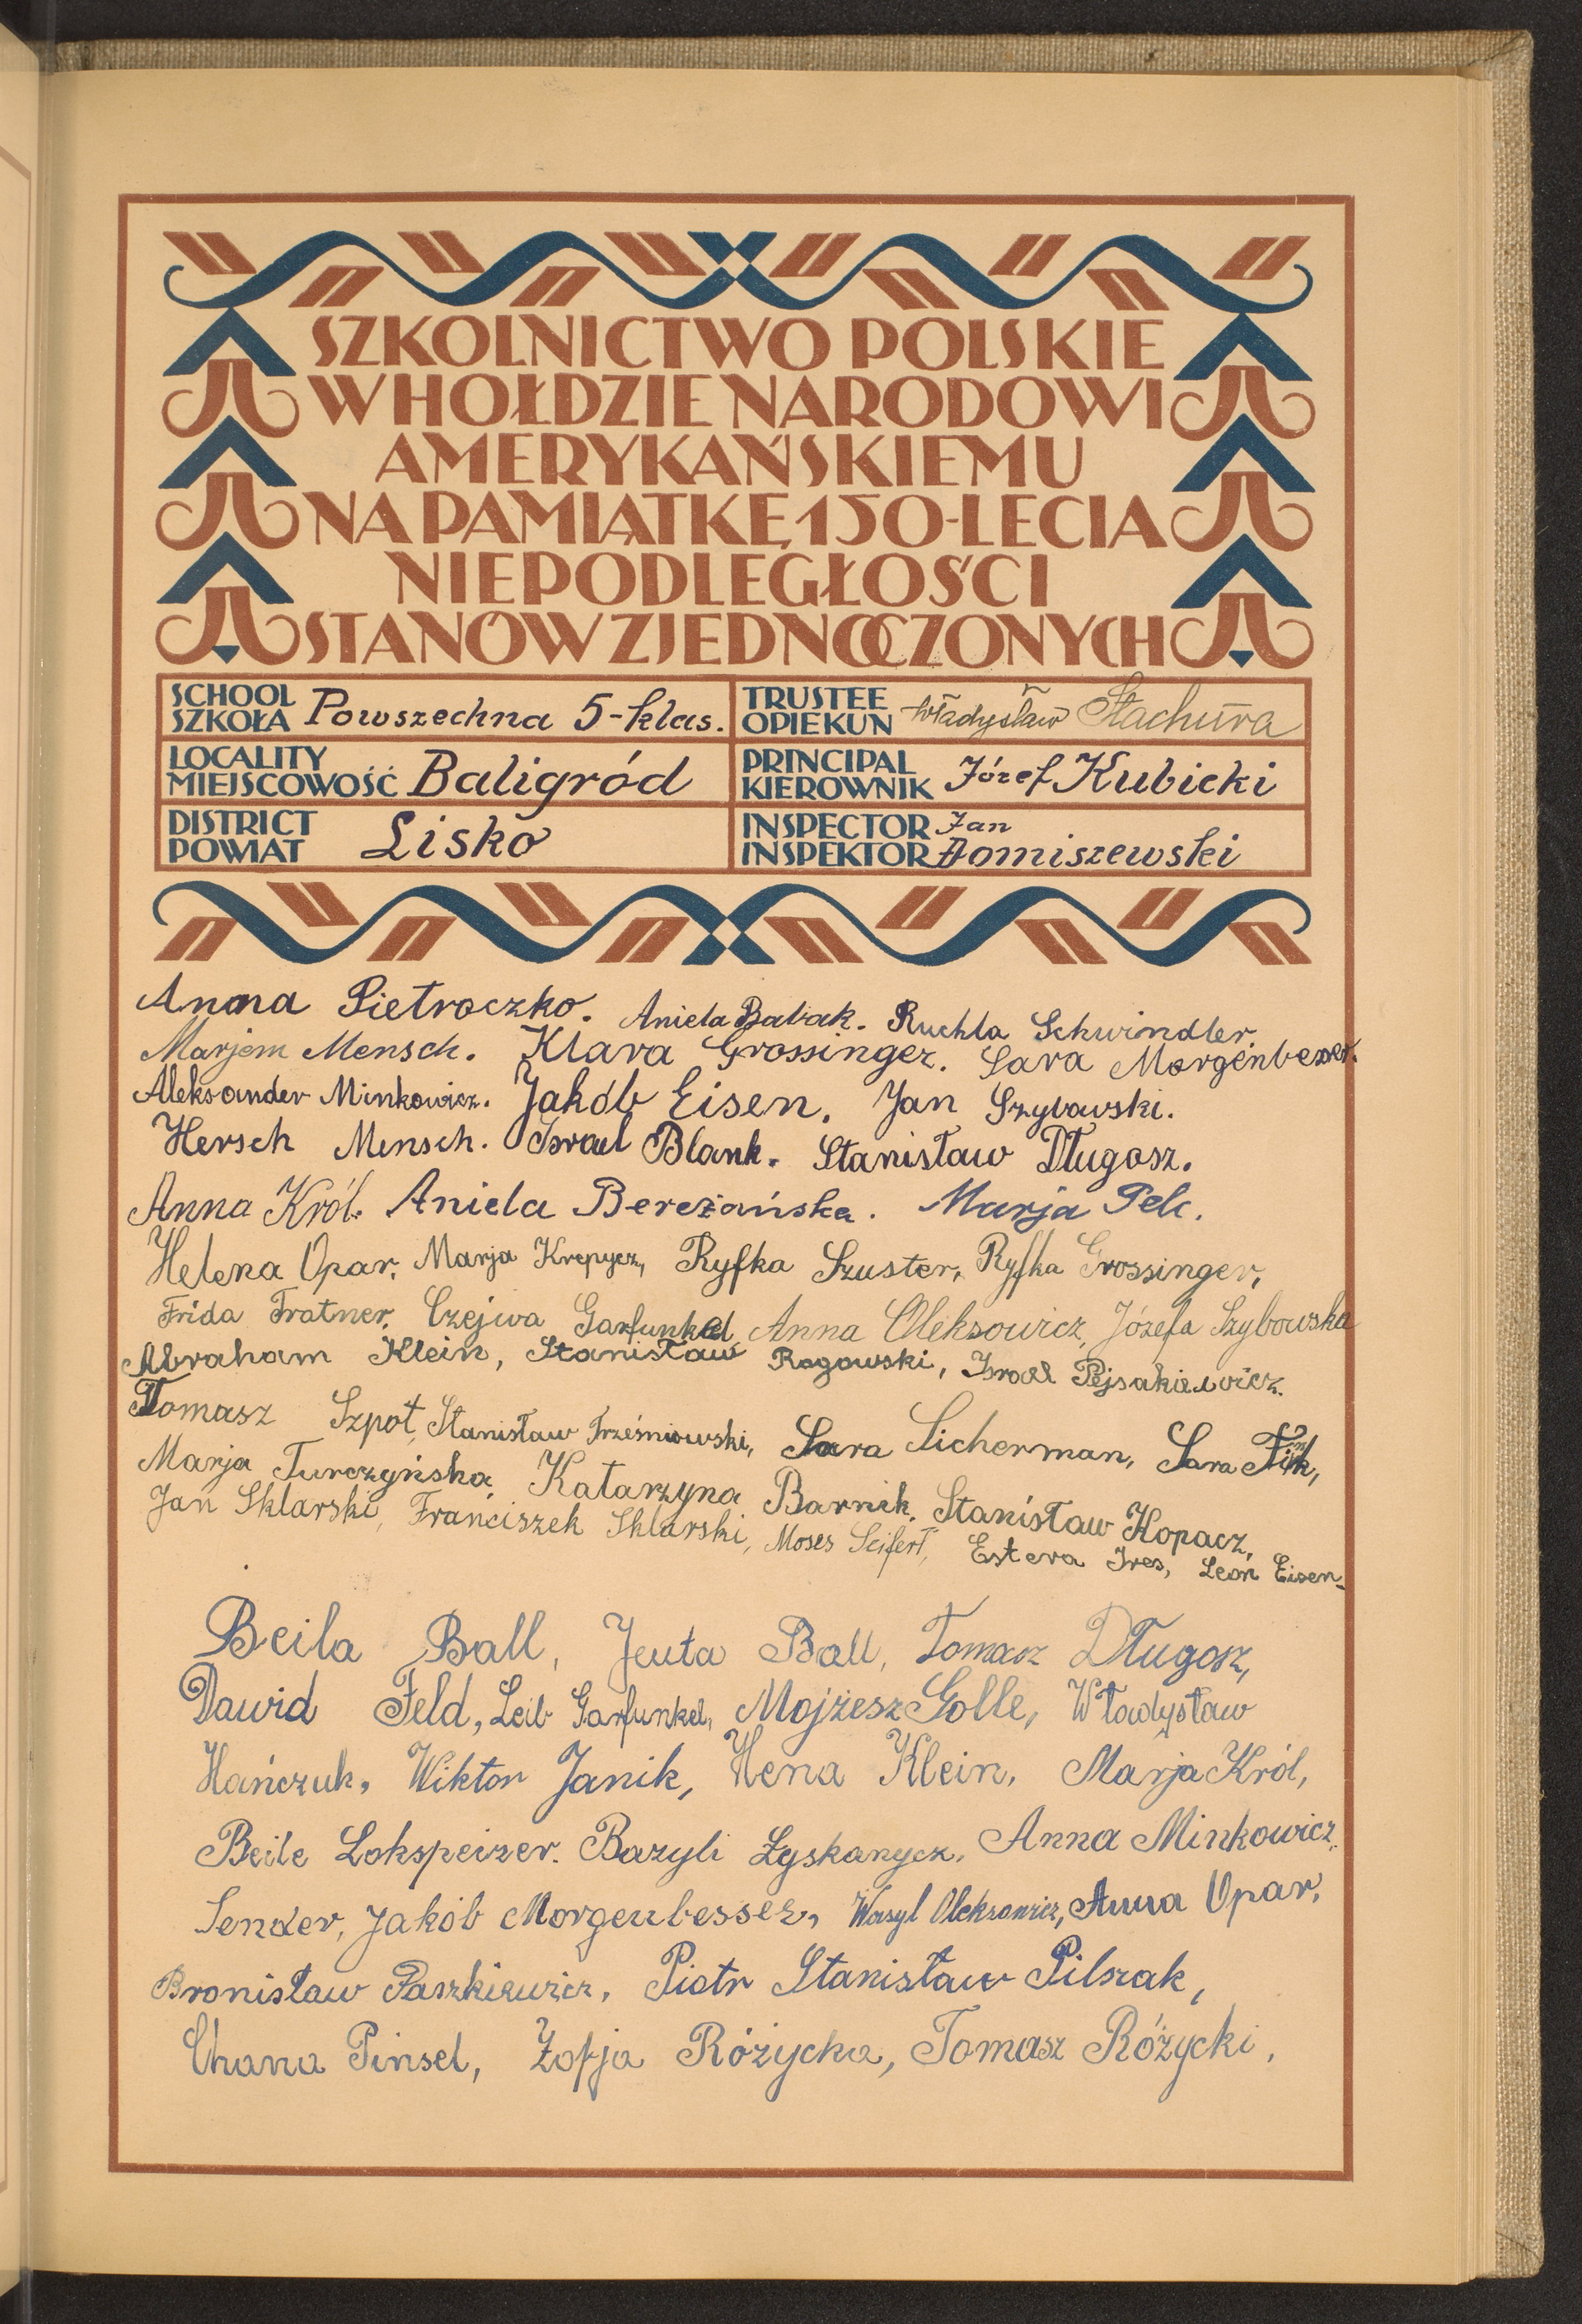 SZKOLNICTWO POLSKIE
W HOŁDZIE NARODOWI
AMERYKAŃSKIEMU
NA PAMIĄTKĘ 150-LECIA
NIEPODLEGŁOŚCI
STANÓW ZJEDNOCZONYCH
SCHOOL
SZKOŁA Powszechna 5-klas.
TRUSTEE
OPIEKUN Władysław Stachura
LOCALITY
MIEJSCOWOŚĆ Baligród
PRINCIPAL
KIEROWNIK Józef Kubicki
DISTRICT
POWIAT Lisko
INSPECTOR Jan
INSPEKTOR Domiszewski
Anna Pietroczko. Aniela Babak. Ruchla Schwindler
Marjem Mensch. Klara Grossinger. Sara Morgenbesser.
Aleksander Minkowicz. Jakób Eisen. Jan Szybowski.
Hersch Mensch. Israel Blank. Stanisław Długosz.
Anna Król. Aniela Bereżańska. Marja Pelc.
Helena Opar, Marja Krepycz, Ryfka Szuster, Ryfka Grossinger,
Frida Tratner, Czejwa Garfunkel, Anna Oleksowicz, Józefa Szybowska
Abraham Klein, Stanisław Rogowski, Israel Pejsakiewicz.
Tomasz Szpot, Stanisław Trześniowski, Sara Sicherman, Sara Fink,
Marja Turczyńska, Katarzyna Barnik, Stanisław Kopacz,
Jan Sklarski, Franciszek Sklarski, Moses Seifert, Estera Ires, Leon Eisen-
Beila Ball, Jeuta Ball, Tomasz Długosz,
Dawid Feld, Leib Garfunkel, Mojżesz Golle, Władysław
Hańczuk, Wiktor Janik, Hena Klein, Marja Król,
Beile Lokspeizer. Bazyli Łyskanycz, Anna Minkowicz,
Sender, Jakób Morgenbesser, Wasyl Oleksowicz, Anna Opar,
Bronisław Paszkiewicz, Piotr Stanisław Pilszak,
Chana Pinsel, Zofja Różycka, Tomasz Różycki,